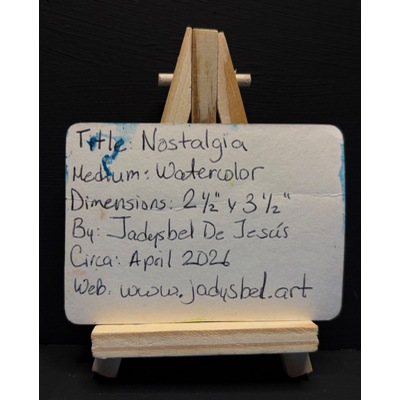 Title: Nostalgia
Medium: Watercolor
Dimensions: 2 ½" x 3 ½"
By: Jadysbel De Jesús
Circa: April 2026
Web: www.jadysbel.art